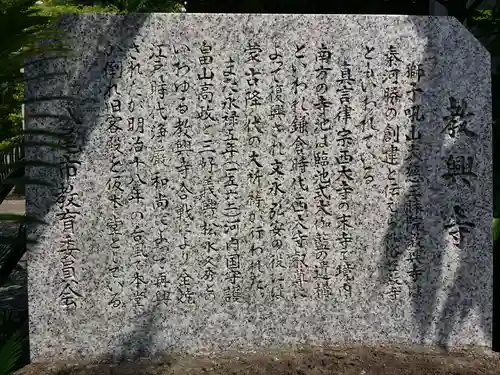 教興寺
獅子吼山大慈三昧院教興寺は
秦河勝の創建と伝え 寺
ともいわれている。
真言律宗西大寺の末寺で境内
南方の寺池は臨池式大伽藍の遺構
といわれ鎌倉時代西大寺叡尊に
よって復興され文永弘安の役には
蒙古降伏の大祈祷が行われた。
また永禄五年(一五六二)河内国守護
畠山高政と三好義興、松永久秀と
いわゆる教興寺合戦により全焼
江戸時代浄厳和尚によって再興
されたが明治十八年の台風で本堂
が倒れ旧客殿を仮本堂としている。
八尾市教育委員会